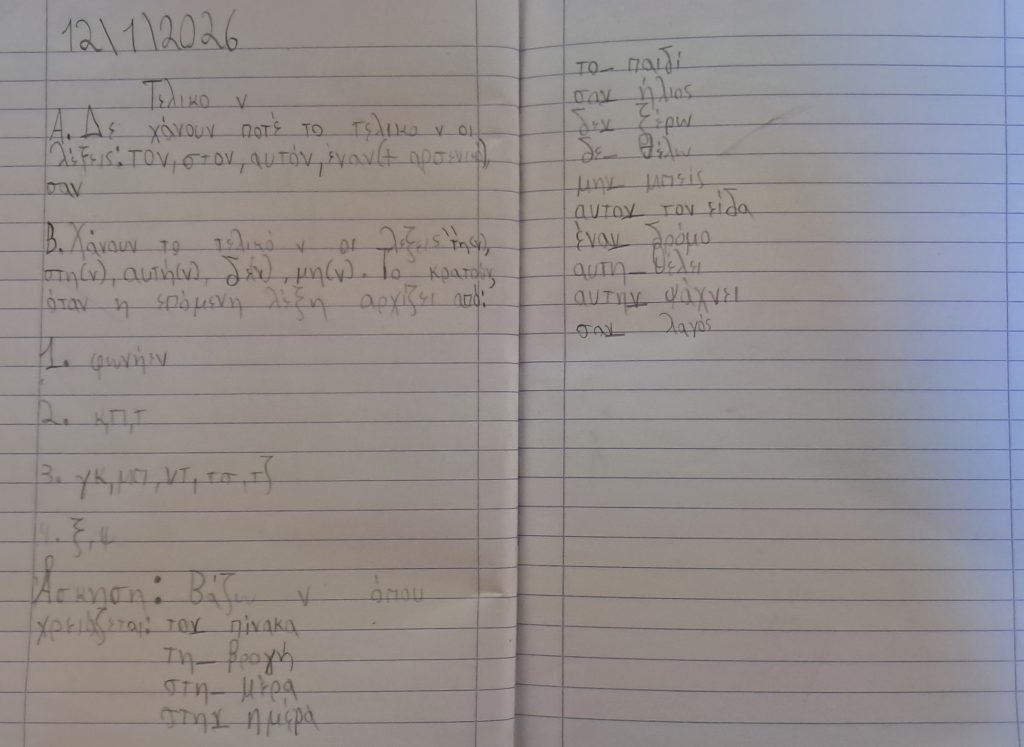 12\1\2026
Τελικο ν
Α. Δε χάνουν ποτέ το τελικο ν οι
λέξεις: τον, στον, αυτόν, έναν (+ αρσενικό),
σαν
Β. Χάνουν το τελικό ν οι λέξεις τη(ν),
στη(ν), αυτή(ν), δε(ν), μη(ν). Το κρατούν
όταν η επόμενη λέξη αρχίζει από:
1. φωνήεν
2. κ,π,τ
3. γκ, μπ, ντ, τσ, τζ
4. ξ, ψ
Άσκηση: Βάζω ν όπου
χρειάζεται: τον πίνακα
τη_ βροχή
στη_ μέρα
στην ημέρα
το_ παιδί
σαν ήλιος
δεν ξέρω
δε_ θέλω
μην μπεις
αυτον τον είδα
έναν δρόμο
αυτη_ θέλει
αυτην ψάχνει
σαν λαγός